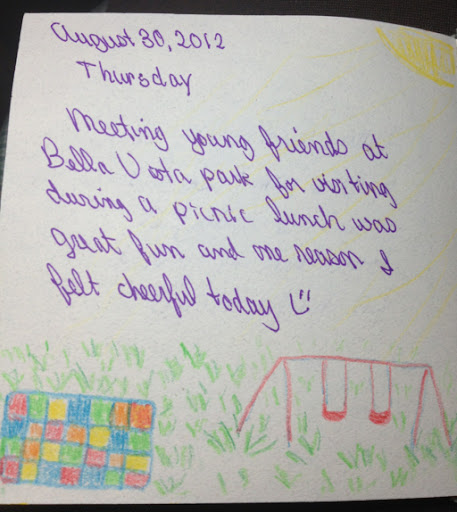 August 30, 2012
Thursday
Meeting young friends at
Bella Vista park for visiting
during a picnic lunch was
great fun and one reason I
felt cheerful today